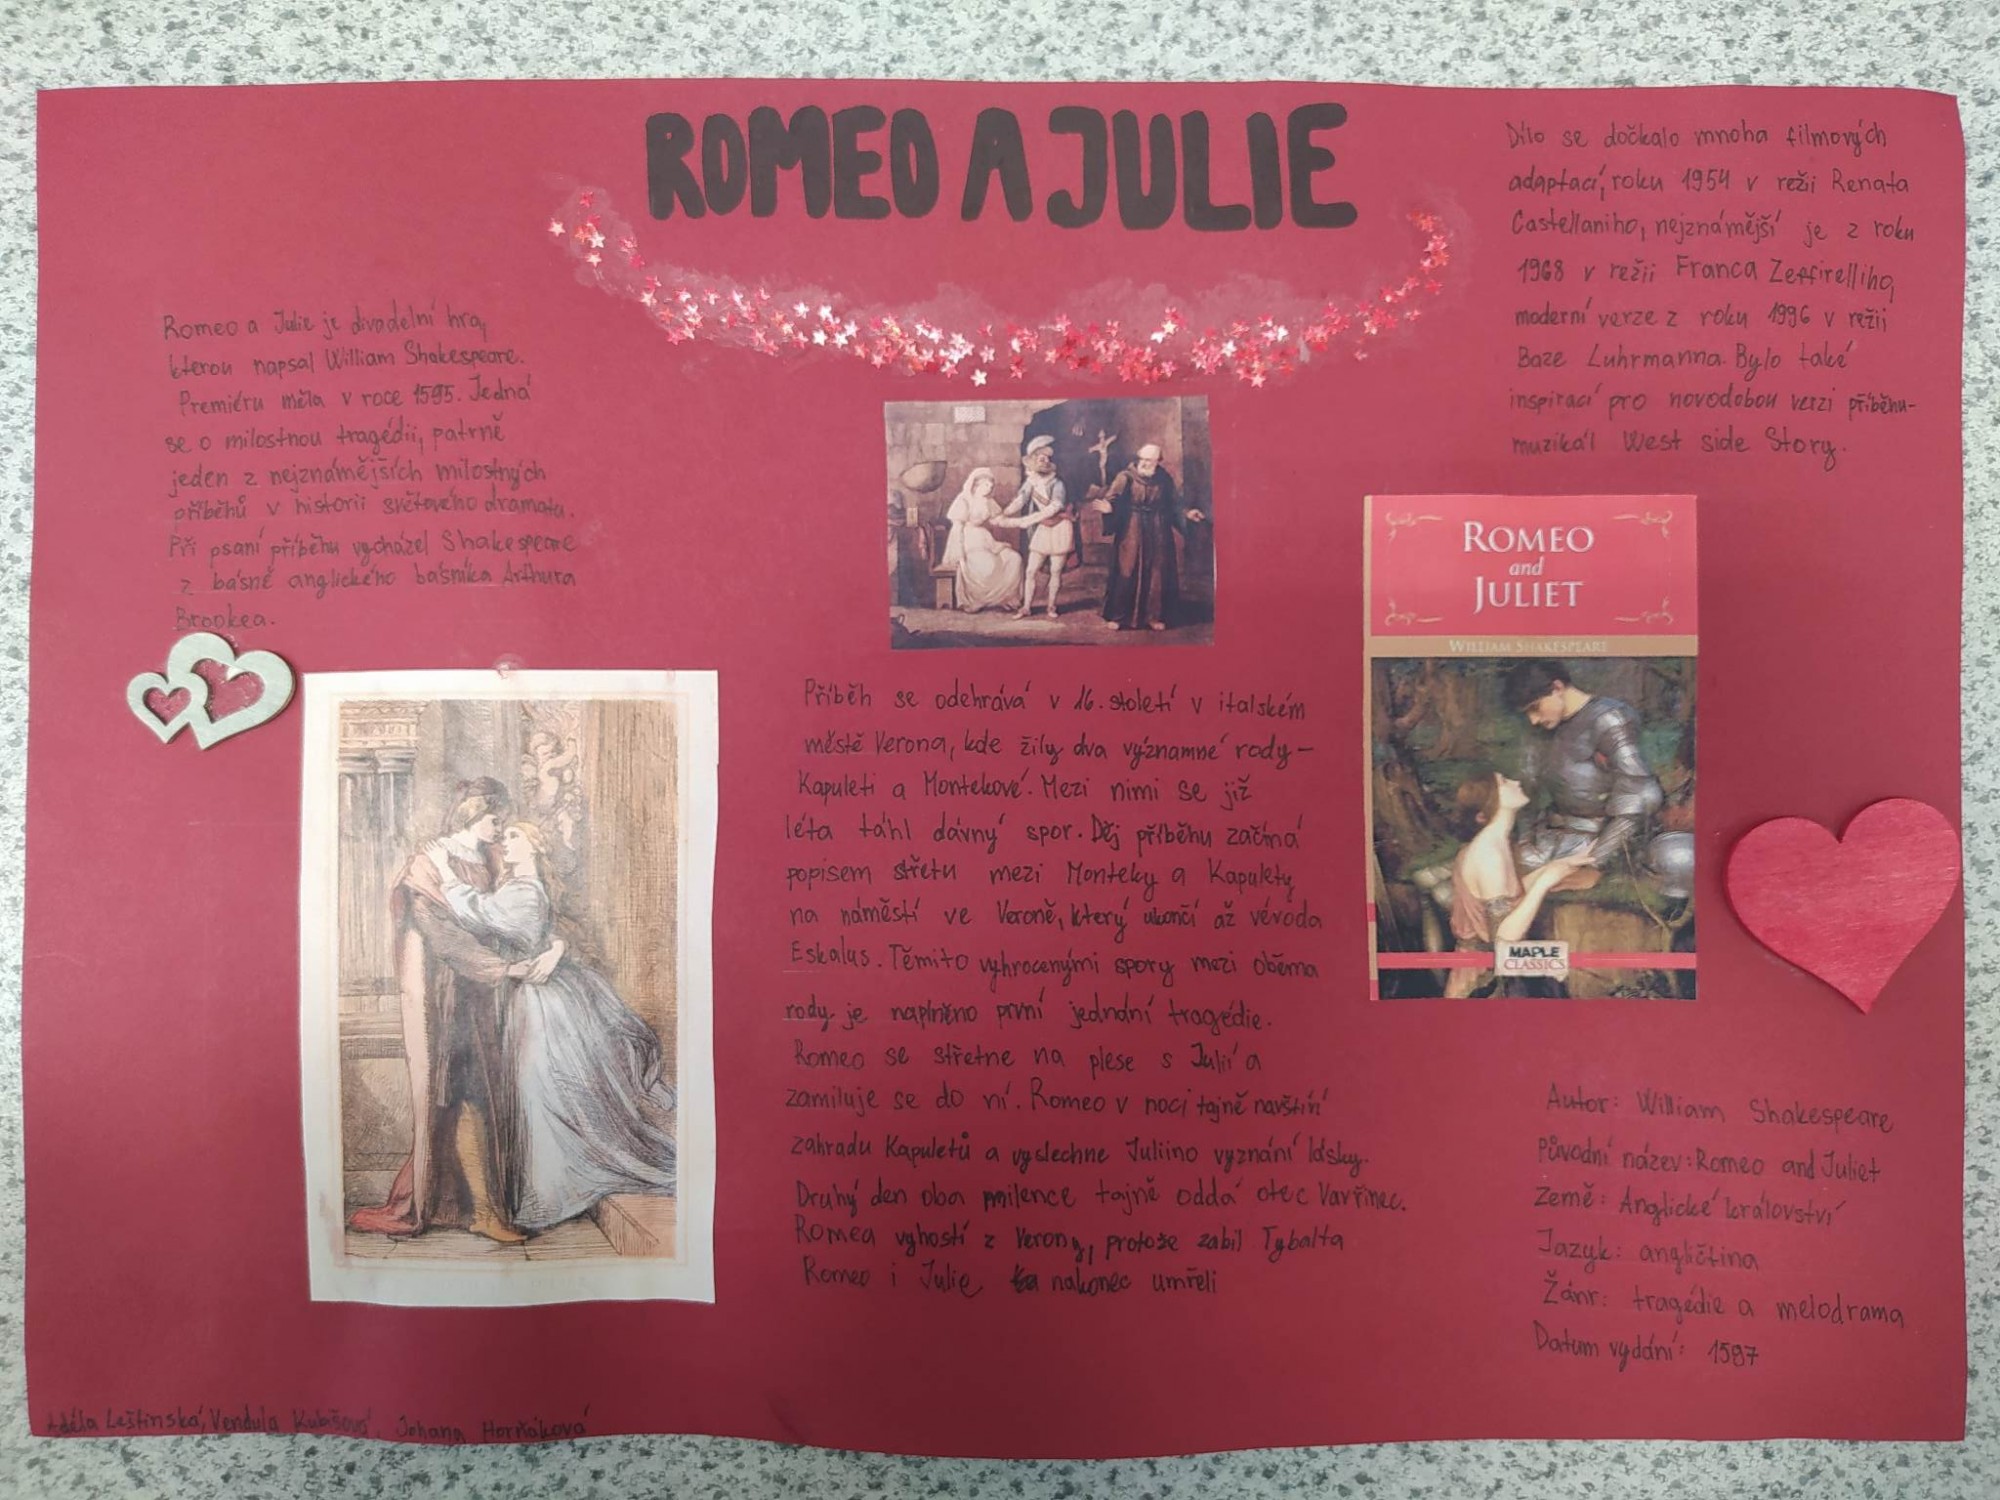 ROMEO A JULIE
Romeo a Julie je divadelní hra,
kterou napsal William Shakespeare.
Premiéru měla v roce 1595. Jedná
se o milostnou tragédii, patrně
jeden z nejznámějších milostných
příběhů v historii světového dramatu.
Při psaní příběhu vycházel Shakespeare
z básně anglického básníka Arthura
Brookea.
Příběh se odehrává v 16. století v italském
městě Verona, kde žily dva významné rody –
Kapuleti a Montekové. Mezi nimi se již
léta táhl dávný spor. Děj příběhu začíná
popisem střetu mezi Monteky a Kapulety
na náměstí ve Veroně, který ukončí až vévoda
Eskalus. Těmito vyhrocenými spory mezi oběma
rody je naplněno první jednání tragédie.
Romeo se střetne na plese s Julií a
zamiluje se do ní. Romeo v noci tajně navštíví
zahradu Kapuletů a vyslechne Juliino vyznání lásky.
Druhý den oba milence tajně oddá otec Vavřinec.
Romea vyhostí z Verony, protože zabil Tybalta
Romeo i Julie nakonec umřeli
Dílo se dočkalo mnoha filmových
adaptací, roku 1954 v režii Renata
Castellaniho, nejznámější je z roku
1968 v režii Franca Zeffirelliho,
moderní verze z roku 1996 v režii
Baze Luhrmanna. Bylo také
inspirací pro novodobou verzi příběhu-
muzikál West side Story.
ROMEO
and
JULIET
WILLIAM SHAKESPEARE
MAPLE
CLASSICS
Autor: William Shakespeare
Původní název: Romeo and Juliet
Země: Anglické království
Jazyk: angličtina
Žánr: tragédie a melodrama
Datum vydání: 1597
Adéla Leštinská, Vendula Kubišová, Johana Horňáková